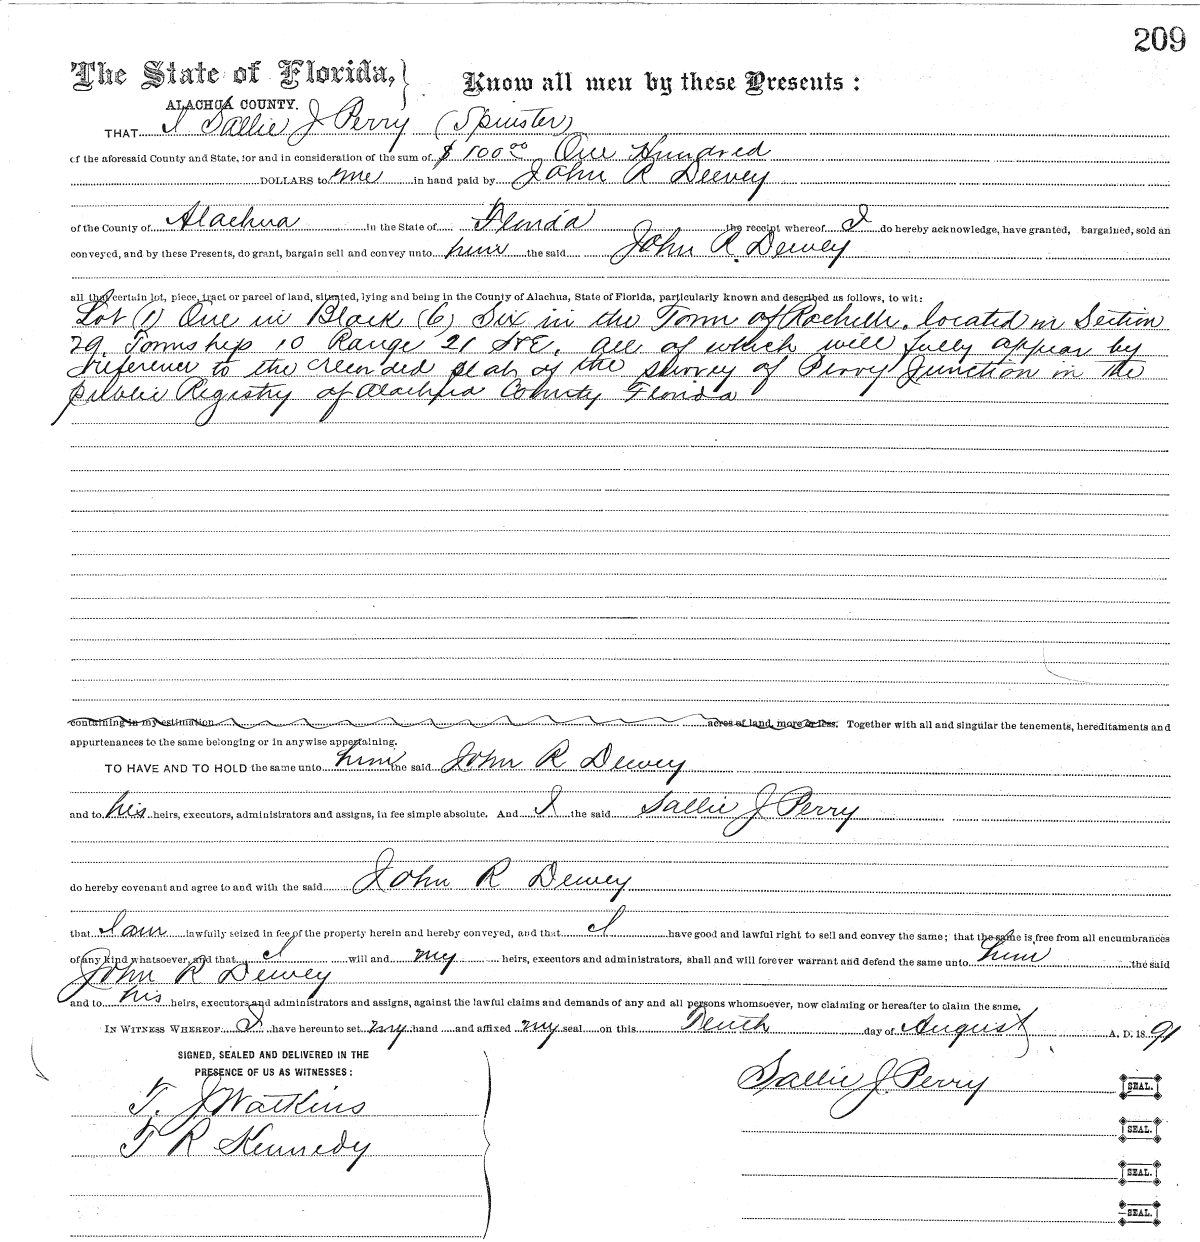 209
The State of Florida,
Know all men by these Presents:
ALACHUA COUNTY.
THAT I Sallie J Perry (Spinster)
of the aforesaid County and State, for and in consideration of the sum of $100.00 One Hundred
DOLLARS to me in hand paid by John R Dewey
of the County of Alachua in the State of Florida the receipt whereof I do hereby acknowledge, have granted, bargained, sold an
conveyed, and by these Presents, do grant, bargain sell and convey unto him the said John R. Dewey
all that certain lot, piece, tract or parcel of land, situated, lying and being in the County of Alachua, State of Florida, particularly known and described as follows, to wit:
Lot (1) One in Block (6) Six in the Town of Rochelle, located in Section
29, Township 10 Range 21 S&E. all of which will fully appear by
reference to the recorded plat of the survey of Perry Junction in the
public Registry of Alachua County Florida
containing in my estimation acres of land, more or less. Together with all and singular the tenements, hereditaments and
appurtenances to the same belonging or in anywise appertaining.
TO HAVE AND TO HOLD the same unto him the said John R Dewey
and to his heirs, executors, administrators and assigns, in fee simple absolute. And I the said Sallie J Perry
do hereby covenant and agree to and with the said John R Dewey
that I am lawfully seized in fee of the property herein and hereby conveyed, and that I have good and lawful right to sell and convey the same; that the same is free from all encumbrances
of any kind whatsoever, and that I will and my heirs, executors and administrators, shall and will forever warrant and defend the same unto him the said
John R Dewey
and to his heirs, executors and administrators and assigns, against the lawful claims and demands of any and all persons whomsoever, now claiming or hereafter to claim the same.
IN WITNESS WHEREOF I have hereunto set my hand and affixed my seal on this Tenth day of August A. D. 18 91
SIGNED, SEALED AND DELIVERED IN THE
PRESENCE OF US AS WITNESSES:
Sallie J. Perry SEAL.
T. J Watkins
SEAL.
T R Kennedy
SEAL.
SEAL.